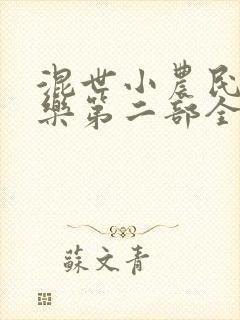 混世小農民
樂第二部全
蘇文青